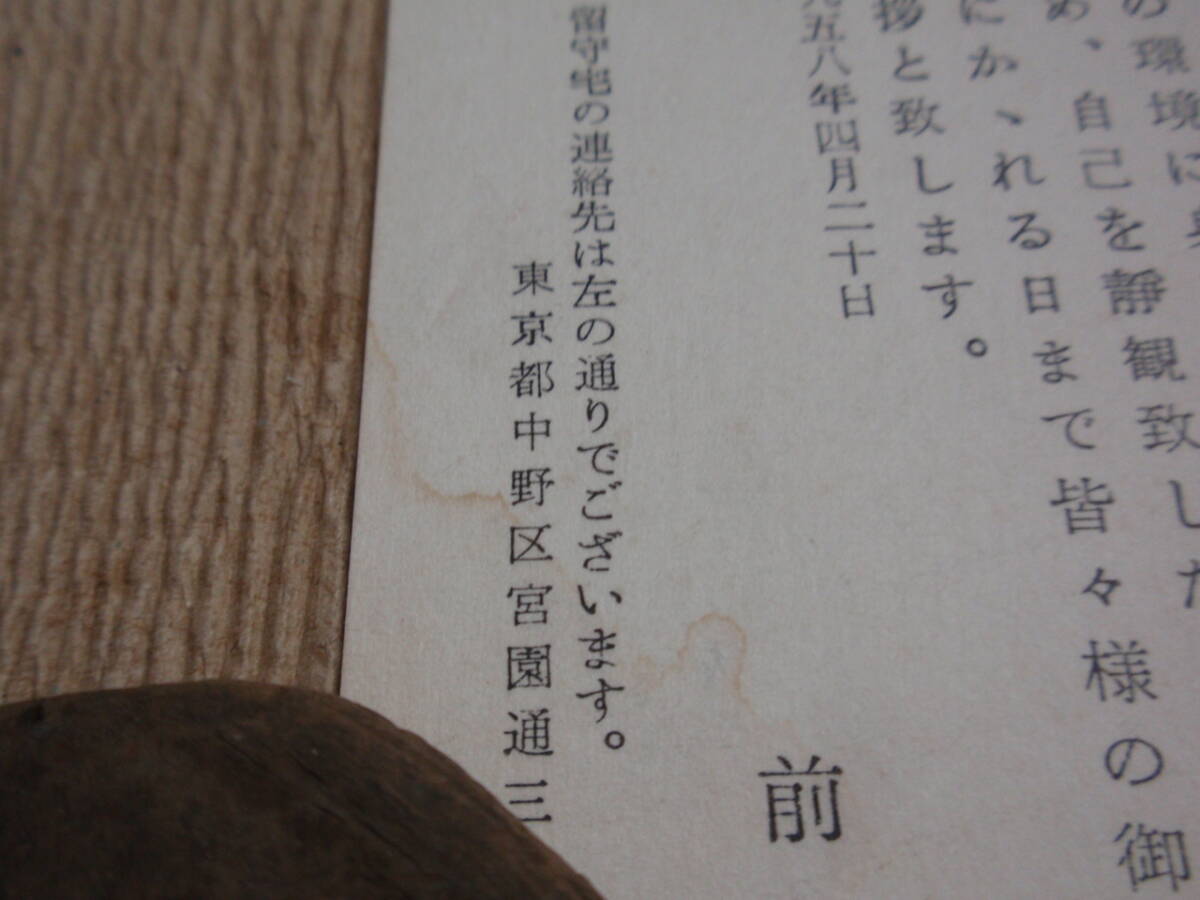 の環境に
め、自己を靜観致した
にかゝれる日まで皆々様の御
拶と致します。
五八年四月二十日
前
留守宅の連絡先は左の通りでございます。
東京都中野区宮園通三